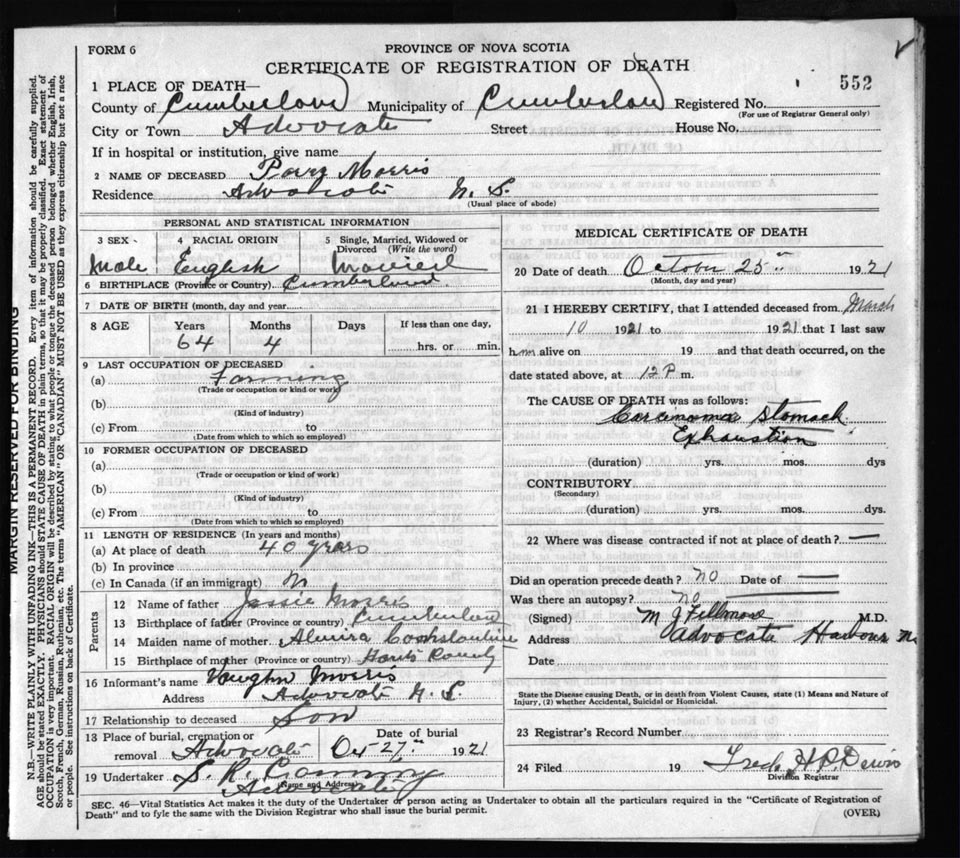 FORM 6
PROVINCE OF NOVA SCOTIA
CERTIFICATE OF REGISTRATION OF DEATH
552
1 PLACE OF DEATH—
County of Cumberland Municipality of Cumberland Registered No.
(For use of Registrar General only)
City or Town Advocate Street House No.
If in hospital or institution, give name
2 NAME OF DECEASED Morris
Residence Advocate N. S.
(Usual place of abode)
PERSONAL AND STATISTICAL INFORMATION
3 SEX 4 RACIAL ORIGIN 5 Single, Married, Widowed or Divorced (Write the word)
Male English Married
6 BIRTHPLACE (Province or Country) Cumberland
7 DATE OF BIRTH (month, day and year)
8 AGE Years Months Days If less than one day,
64 4 hrs. or min.
9 LAST OCCUPATION OF DECEASED
(a) Farming
(Trade or occupation or kind of work)
(b)
(Kind of industry)
(c) From to
(Date from which to which so employed)
10 FORMER OCCUPATION OF DECEASED
(a)
(Trade or occupation or kind of work)
(b)
(Kind of industry)
(c) From to
(Date from which to which so employed)
11 LENGTH OF RESIDENCE (In years and months)
(a) At place of death 40 years
(b) In province
(c) In Canada (if an immigrant)
Parents
12 Name of father Jessie Morris
13 Birthplace of father (Province or country) Cumberland
14 Maiden name of mother Almira
15 Birthplace of mother (Province or country) Hants County
16 Informant's name Vaughn Morris
Address Advocate N. S.
17 Relationship to deceased Son
13 Place of burial, cremation or removal Date of burial
Advocate Oct 27th 1921
19 Undertaker S. R.
(Name and Address)
Advocate
MEDICAL CERTIFICATE OF DEATH
20 Date of death October 25th 1921
(Month, day and year)
21 I HEREBY CERTIFY, that I attended deceased from March
10 1921 to 1921 that I last saw
him alive on 19 and that death occurred, on the
date stated above, at 12 P m.
The CAUSE OF DEATH was as follows:
Carcinoma Stomach
Exhaustion
(duration) yrs. mos. dys
CONTRIBUTORY
(Secondary)
(duration) yrs. mos. dys.
22 Where was disease contracted if not at place of death? —
Did an operation precede death? NO Date of —
Was there an autopsy? NO
(Signed) M J Fillmore M.D.
Address Advocate Harbour
Date
State the Disease causing Death, or in death from Violent Causes, state (1) Means and Nature of
Injury, (2) whether Accidental, Suicidal or Homicidal.
23 Registrar's Record Number
24 Filed 19 Fred
Division Registrar
SEC. 46—Vital Statistics Act makes it the duty of the Undertaker or person acting as Undertaker to obtain all the particulars required in the "Certificate of Registration of
Death" and to fyle the same with the Division Registrar who shall issue the burial permit.
(OVER)
MARGIN RESERVED FOR BINDING
N.B.—WRITE PLAINLY WITH UNFADING INK—THIS IS A PERMANENT RECORD. Every item of information should be carefully supplied.
AGE should be stated EXACTLY. PHYSICIANS should STATE CAUSE OF DEATH in plain terms, so that it may be properly classified. Exact statement of
OCCUPATION is very important. RACIAL ORIGIN will be described by stating to what people or tongue the deceased person belonged whether English, Irish,
Scotch, French, German, Russian, Ruthenian, etc. The terms "AMERICAN" OR "CANADIAN" MUST NOT BE USED as they express citizenship but not a race
or people. See instructions on back of Certificate.